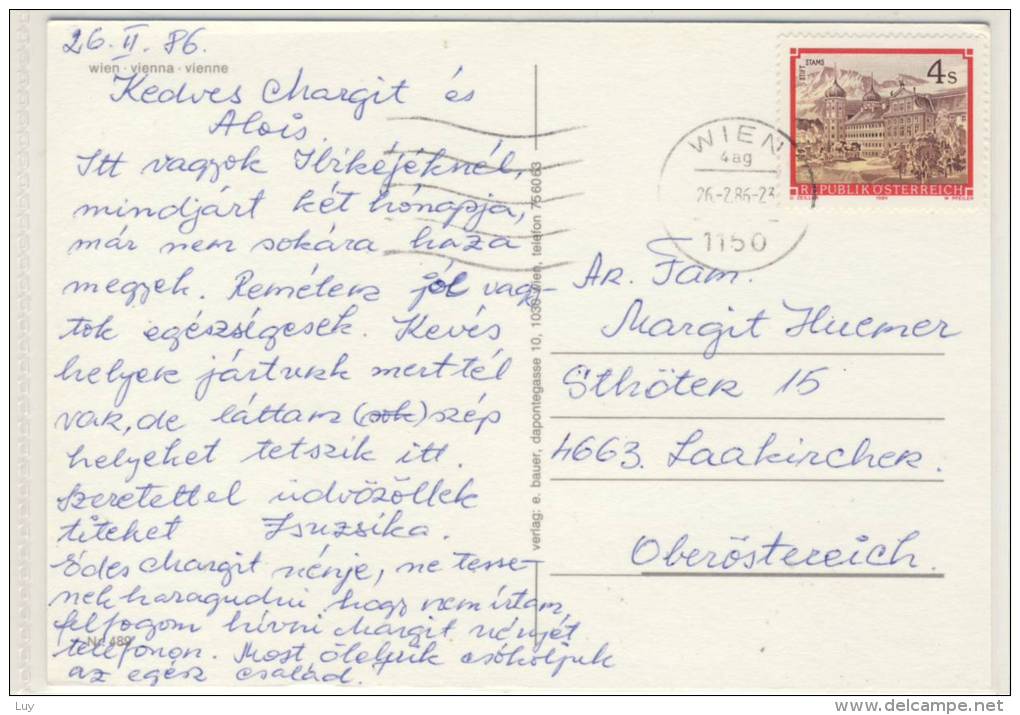 26. II. 86.
wien · vienna · vienne
Kedves Margit és
Alois
Itt vagyok Ibikéjéknél,
mindjárt két hónapja,
már nem sokára haza
megyek. Remélem jól vagy-
tok egészségesek. Kevés
helyen jártunk mert tél
van, de láttam (sok) szép
helyeket tetszik itt.
Szeretettel üdvözöllek
titeket Zsuzsika.
Édes Margit nénje, ne tesse-
nek haragudni hogy nem írtam,
felfogom hívni Margit nénjét
telefonon. Most öleljük csókoljuk
az egész család.
Nr. 489
verlag: e. bauer, dapontegasse 10, 1030 wien, telefon 756063
STIFT STAMS
4 S
REPUBLIK ÖSTERREICH
1984
W. PFEILER
WIEN
4ag
26.-2.86-23
1150
An. Fam.
Margit Huemer
Sthöten 15
4663. Laakirchen.
Oberöstereich.
Luy